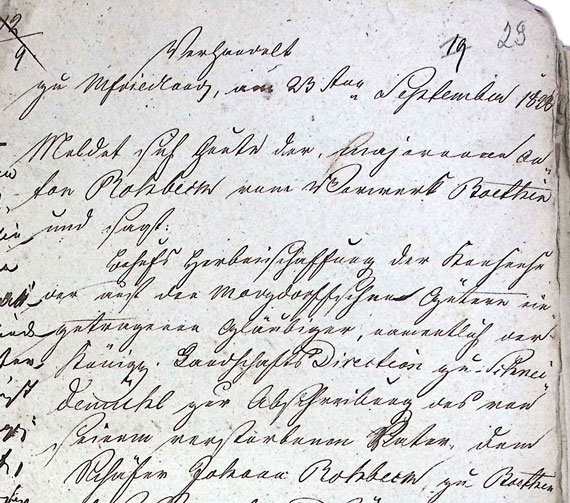 19 29
Verhandelt
zu Mfriedland, am 23 ten September 18
Meldet sich heute der, majorenne An-
ton Rohbeck vom Vorwerk Boethin
und sagt:
behufs Herbeischaffung der Konsense
der auf den Morgdorffschen Gütern ein-
getragenen Gläubiger, namentlich der
Königg. Landschafts Direction zu Schnei-
demühl zur Abschreibung des von
seinem verstorbenen Vater, dem
Schäfer Johann Rohbeck zu Boethin